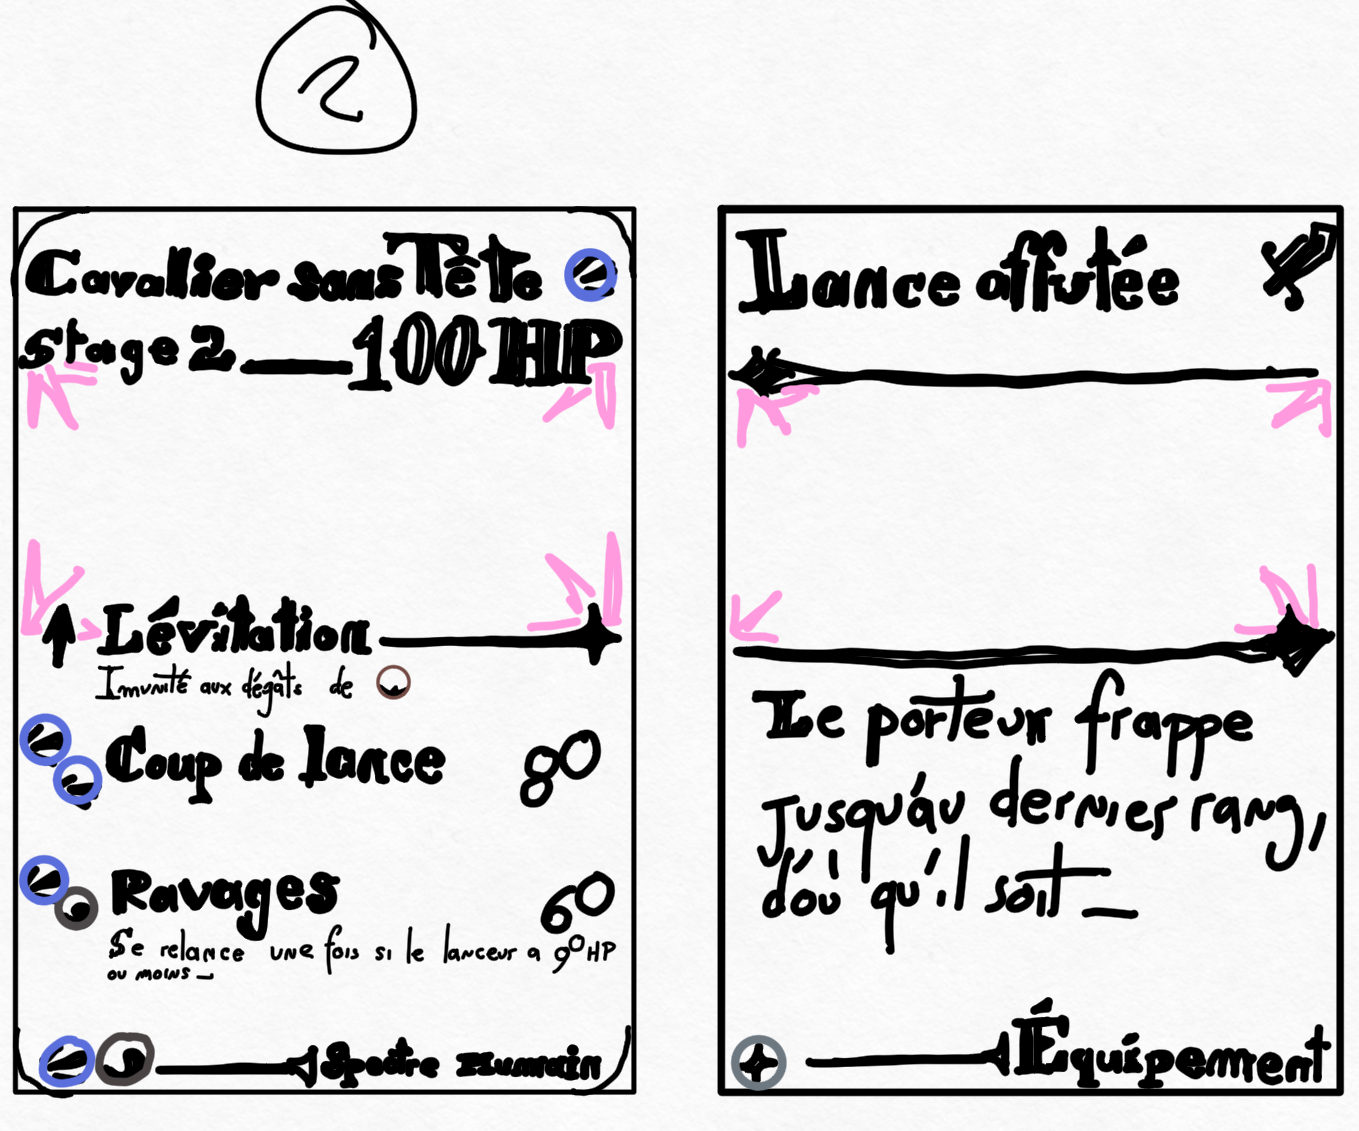 2
Cavalier sans Tête
Stage 2 100 HP
Lévitation
Imunité aux dégâts de
Coup de lance 80
Ravages 60
Se relance une fois si le lanceur a 90 HP
ou moins
Spectre Humain
Lance affutée
Le porteur frappe
jusqu'au dernier rang,
d'où qu'il soit
Équipement